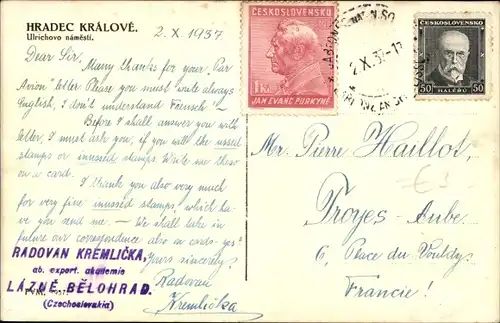 HRADEC KRÁLOVÉ.
Ulrichovo náměstí.
2. X. 1937
Dear Sir,
Many thanks for your "Par
Avion" letter. Please you must write always
English, I don't understand French. –
Before I shall answer you with
letter, I must ask you, if you will the used
stamps or inused stamps. Write me these
on a card.
I thank you also very much
for very fine inused stamps, which ha-
ve you send me. – We shall take in
future our correspondence also on cards-yes?
Yours sincerely,
Radovan
Kremlička
RADOVAN KREMLIČKA,
ab. export. akademie
LÁZNĚ BĚLOHRAD.
(Czechoslovakia)
ČESKOSLOVENSKO
1 Kč
JAN EVANG. PURKYNĚ
2. X. 37
ČESKOSLOVENSKO
50 HALÉŘŮ 50
Mr. Pierre Haillot,
Troyes-Aube
6 Place du Vouldy
Francie!